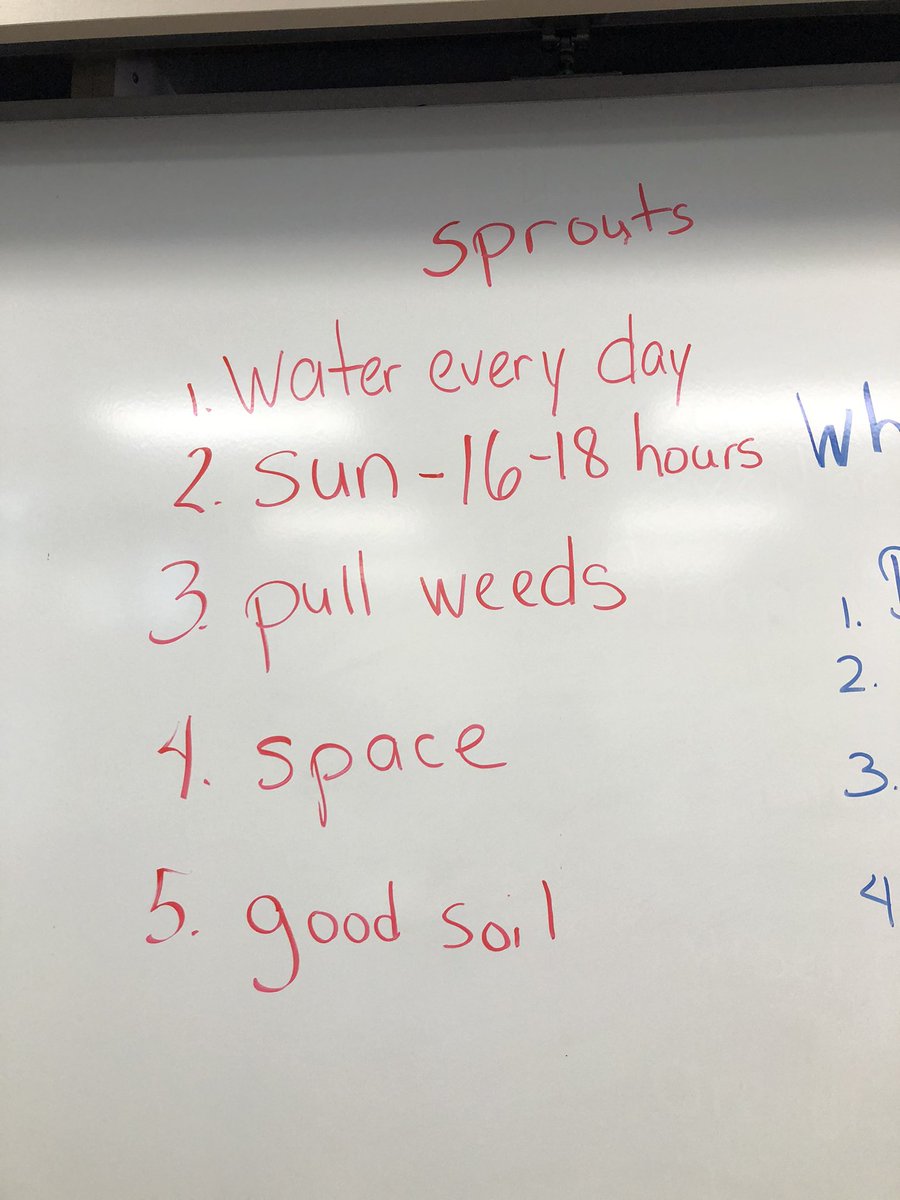 Sprouts
1. Water every day
2. Sun - 16-18 hours
3. pull weeds
4. space
5. good soil
Wh
1.
2.
3.
4